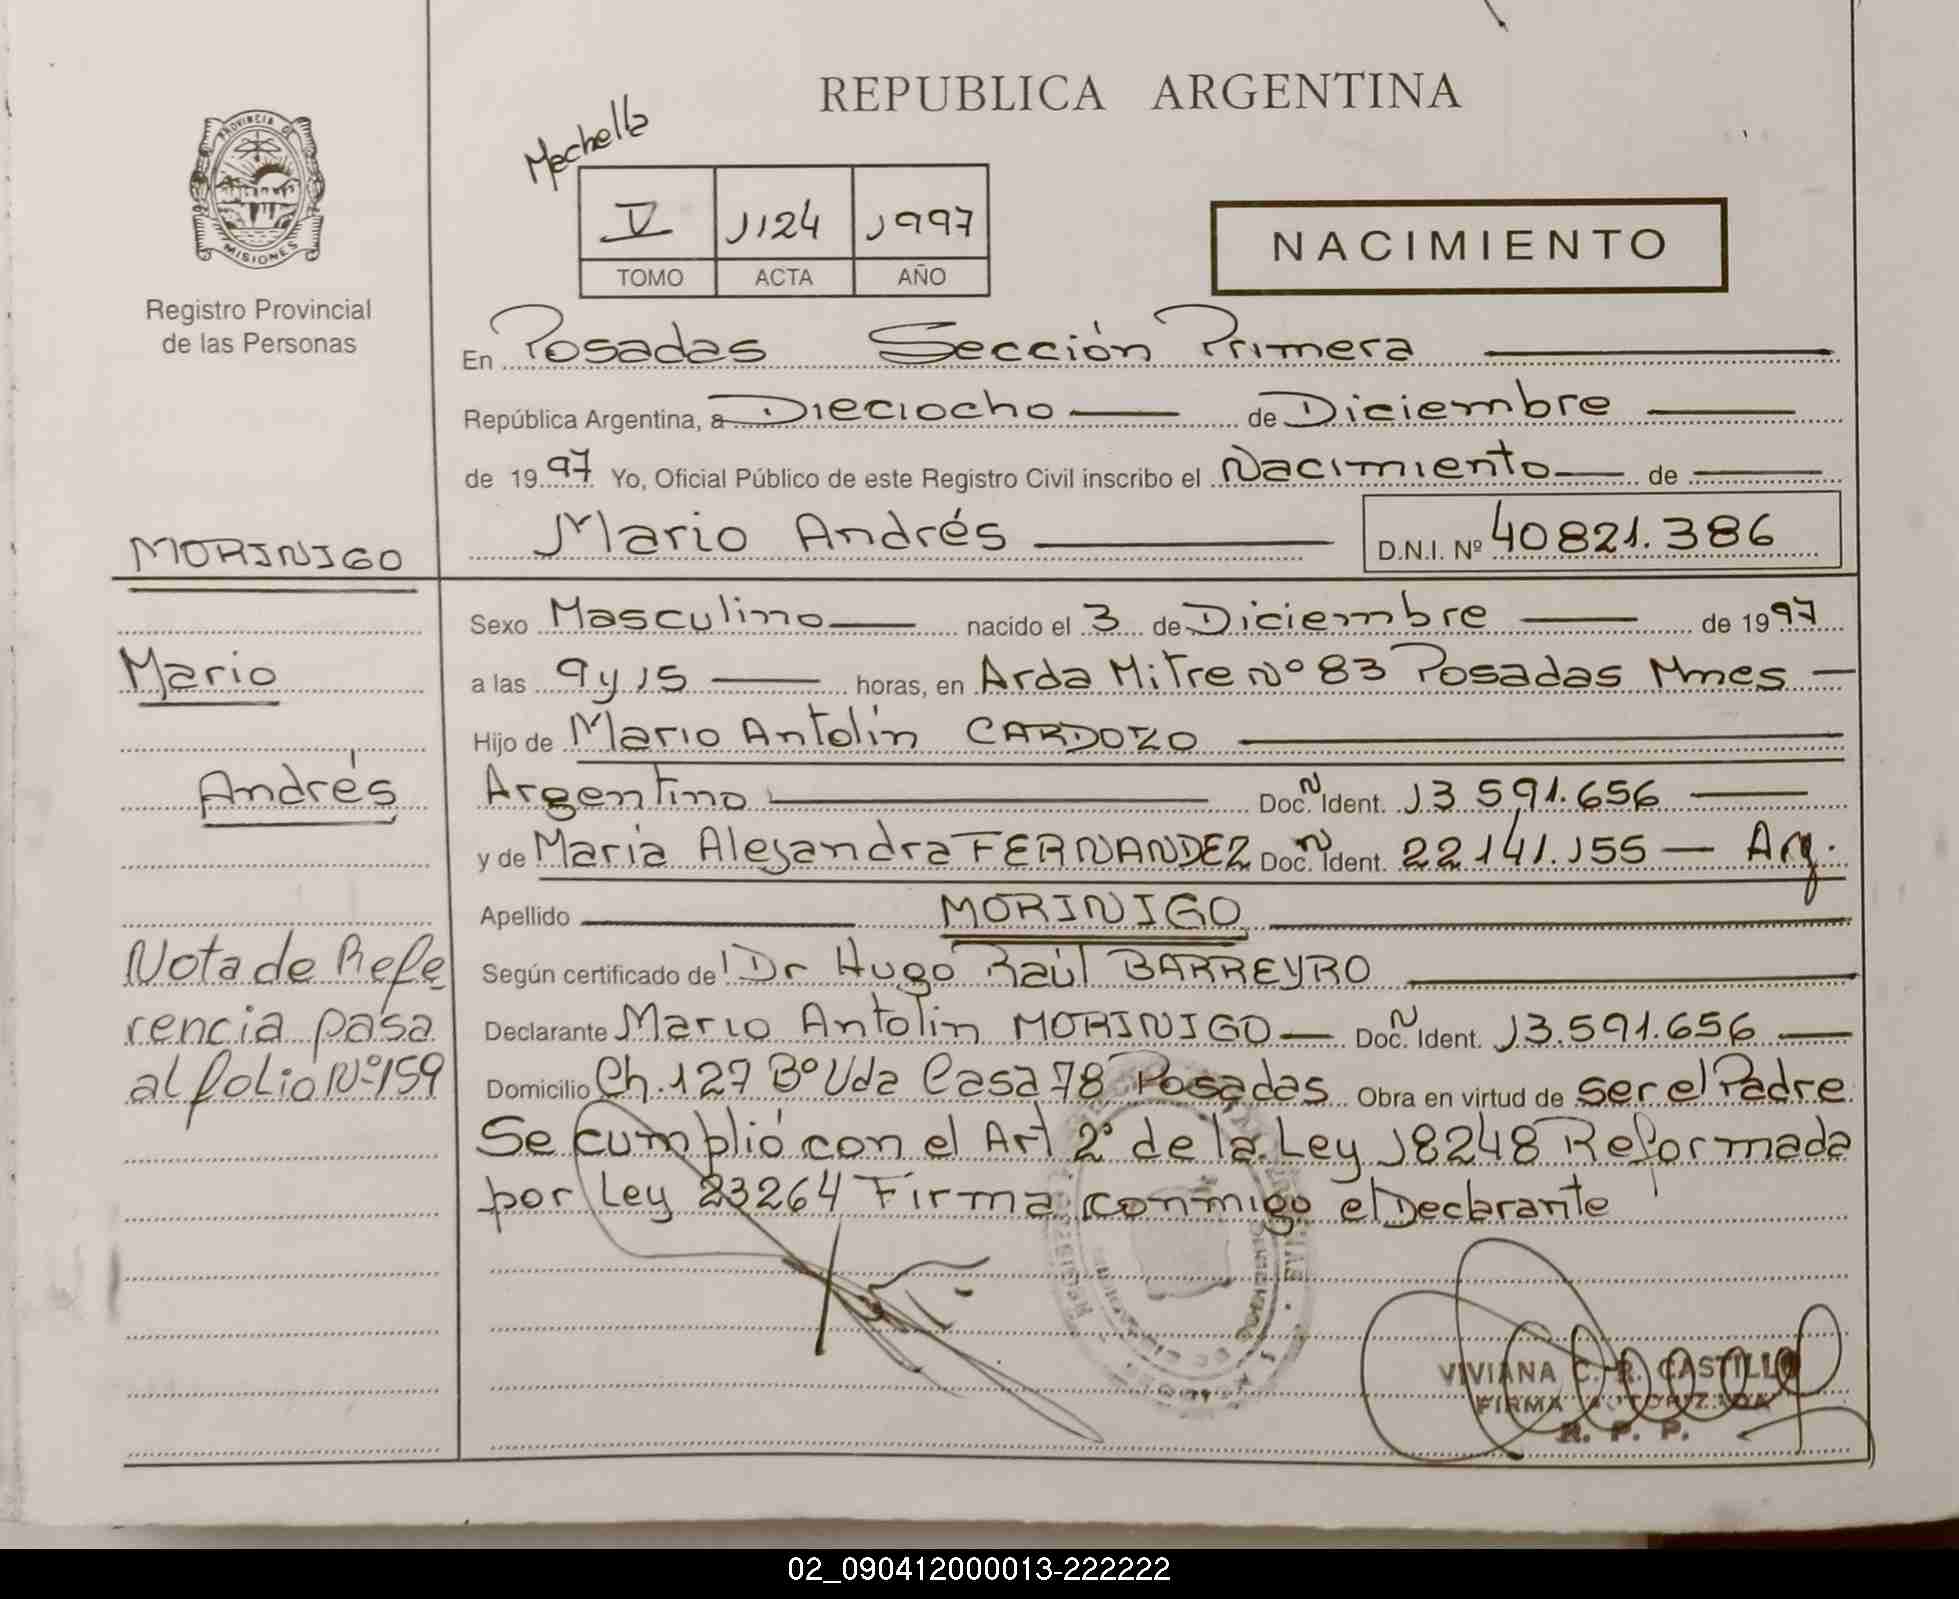 REPUBLICA ARGENTINA
PROVINCIA DE
MISIONES
Registro Provincial
de las Personas
Mechella
V 1124 1997
TOMO ACTA AÑO
NACIMIENTO
En Posadas Sección Primera
República Argentina, a Dieciocho de Diciembre
de 1997 Yo, Oficial Público de este Registro Civil inscribo el Nacimiento de
Mario Andrés D.N.I. Nº 40821.386
MORINIGO
Mario
Andrés
Nota de Refe
rencia pasa
al folio Nº 159
Sexo Masculino nacido el 3 de Diciembre de 1997
a las 9 y 15 horas, en Arda Mitre Nº 83 Posadas Mnes
Hijo de Mario Antolín CARDOZO
Argentino Doc. N Ident. 13 591.656
y de María Alejandra FERNANDEZ Doc. N Ident. 22141.155 Arg.
Apellido MORINIGO
Según certificado de Dr Hugo Raúl BARREYRO
Declarante Mario Antolín MORINIGO Doc. N Ident. 13.591.656
Domicilio Ch. 127 Bº Uda Casa 78 Posadas Obra en virtud de ser el Padre
Se cumplió con el Art 2º de la Ley 18248 Reformada
por Ley 23264 Firma conmigo el Declarante
VIVIANA C. R. CASTILLO
FIRMA AUTORIZADA
R. P. P.
02_090412000013-222222